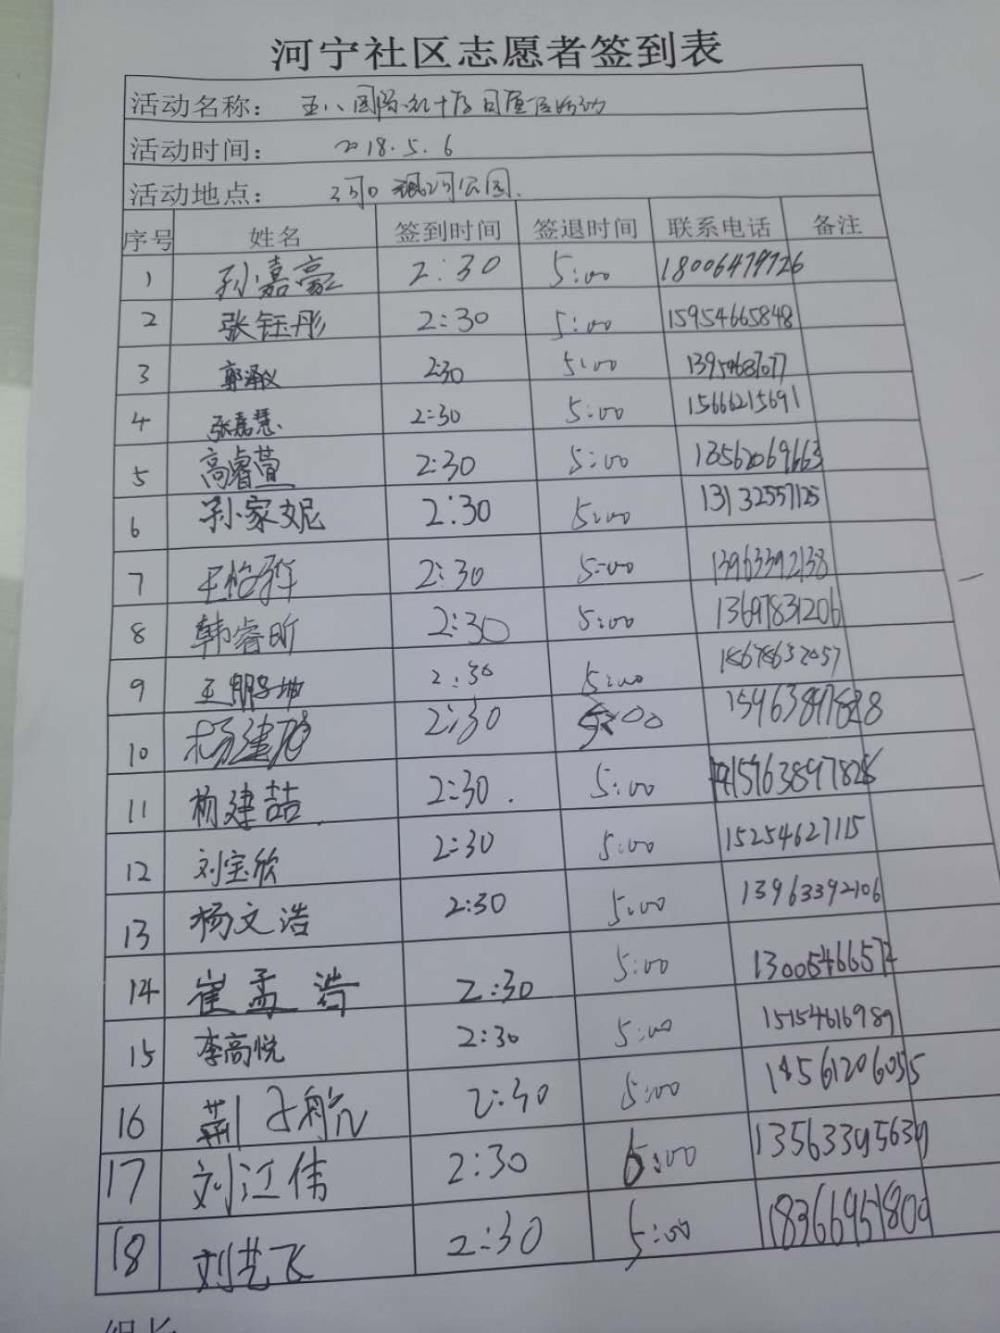 河宁社区志愿者签到表
活动名称： 五八国际红十字日宣传活动
活动时间： 2018.5.6
活动地点： 公园.
序号 姓名 签到时间 签退时间 联系电话 备注
1 孙嘉豪 2:30 5:00
2 张钰彤 2:30 5:00 15954665848
3 郭泽仪 2:30 5:00
4 张嘉慧 2:30 5:00 15666215691
5 高睿萱 2:30 5:00 13562069663
6 孙家妮 2:30 5:00 13132557125
7 2:30 5:00 13963392138
8 韩睿昕 2:30 5:00 13697831206
9 2:30 5:00 18678632057
10 2:30 5:00
11 杨建喆 2:30. 5:00
12 刘宝欣 2:30 5:00 15254627115
13 杨文浩 2:30 5:00 13963392106
14 崔孟浩 2:30 5:00 13005466572
15 李高悦 2:30 5:00 15154616989
16 荆子航 2:30 5:00
17 刘江伟 2:30 5:00 13563395639
18 刘艺飞 2:30 5:00